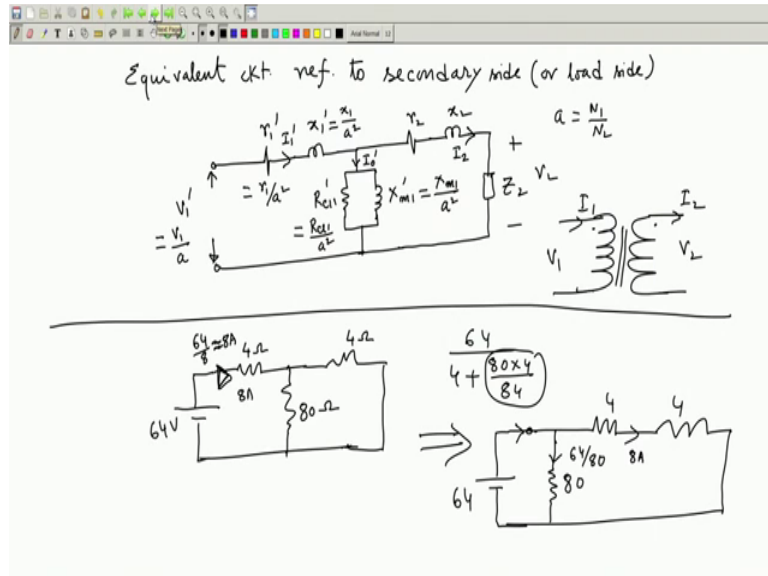 Next Page
Arial Normal 12
Equivalent ckt. ref. to secondary side (or load side)
r₁' I₁' x₁' = x₁/a²
r₂ x₂
a = N₁/N₂
I₀' I₂ +
= r₁/a²
V₁' = V₁/a
Rcl1' = Rcl1/a²
Xm1' = Xm1/a²
Z₂ V₂
−
I₁ I₂
V₁ V₂
64/8 ≈ 8A
4Ω 4Ω
8A
80Ω
64V
64 / (4 + (80×4)/84)
⇒
4 4
64/80 8A
80
64